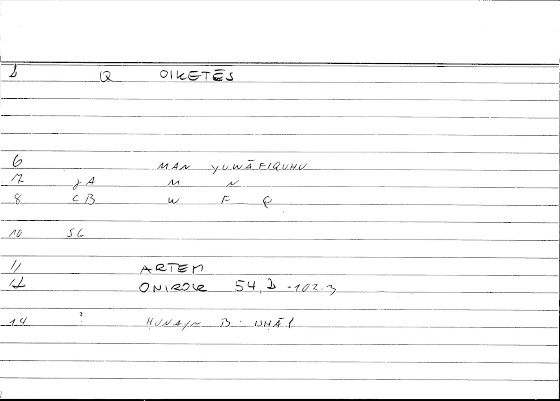 Q OIKETĒS
6 MAN YUWĀFIQUHU
7 JA M N
8 CB W F Q
10 SG
11 ARTEM
12 ONIROCR 54, -102.3
14 ? HUNAYN B.